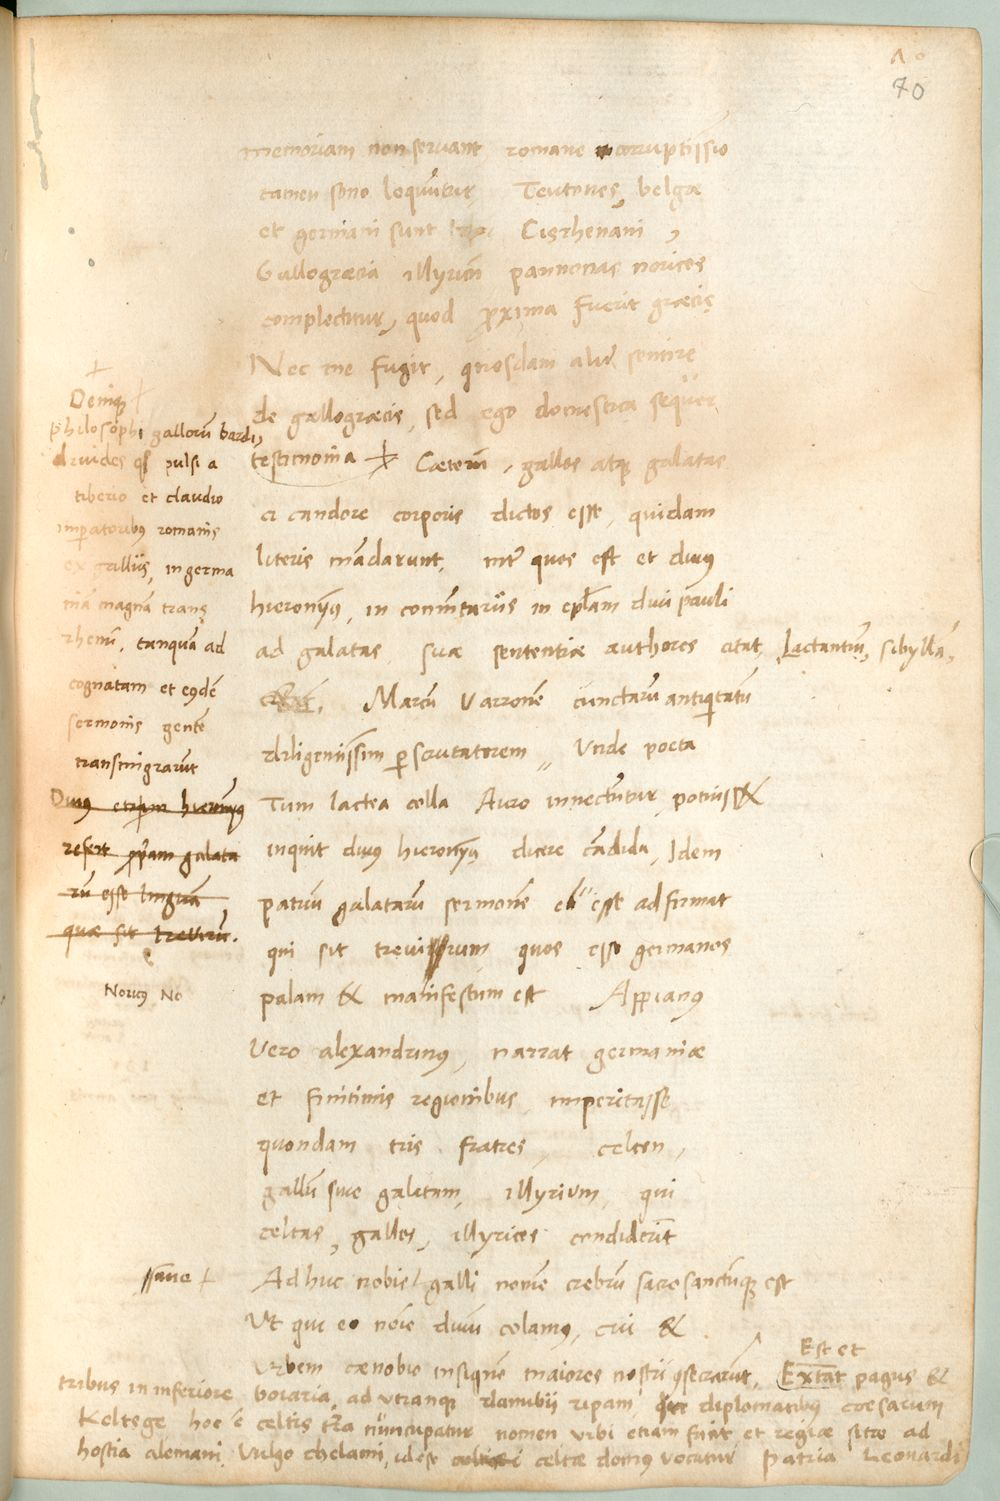 70
memoriam non servant, romane corruptissio
tamen sono loquūtur Teutones, belgæ
et germani sunt Cisrhenani,
Gallogræcia illyricū pannonas noricos
complectitur, quod proxima fuerit græcis
Nec me fugit, quosdam alit sentire
de gallogræcis, sed ego domestica sequor
testimonia + Cæterū, gallos atq galatas
a candore corporis dictos esse, quidam
literis mādarunt, inter quos est et divus
hieronymus, in commētariis in eplam divi pauli
ad galatas suæ sententiæ authores citat, Lactantiū, sibyllā,
Marcū Varronē cunctarū antiquitatū
diligentissim perscrutatorem, Unde poeta
Tum lactea colla Auro innectūtur, potius &
inquit divus hieronymus dicere cādida, Idem
patriū galatarū sermonē eū esse adfirmat
qui sit trevirorum quos esse germanos
palam & manifestum est Appianus
Vero alexandrinus, narrat germaniæ
et finitimis regionibus imperitasse
quondam tris fratres, celten,
gallū sive galatam, illyrium, qui
celtas, gallos, illyrios condiderīt
Adhuc nobis galli nomē crebrū sacrosanctūque est
Ut qui eo noīe divū colamus, cui &
Urbem cænobio insignē maiores nostri consecrarūt,
Est et
Extat pagus &
tribus in inferiore boiaria, ad utranque danubii ripam, diplomatibus cæsarum
Keltege hoc ē celtis tra nūncupatur nomen urbi etiam fuit et regiæ sitæ ad
hostia alemani, Vulgo chelami, id est celtæ domus vocatur Patria Leonardi
+
Denique +
philosophi gallorū bardi,
druides pulsi a
tiberio et claudio
imperatoribus romanis
ex galliis, in germa
niā magnā trans
rhenū, tanquā ad
cognatam et eiusdē
sermonis gentē
transmigrarūt
Divus etiam hieronymus
refert propriam galata
rū esse linguā
quæ sit trevirū.
Noricus No